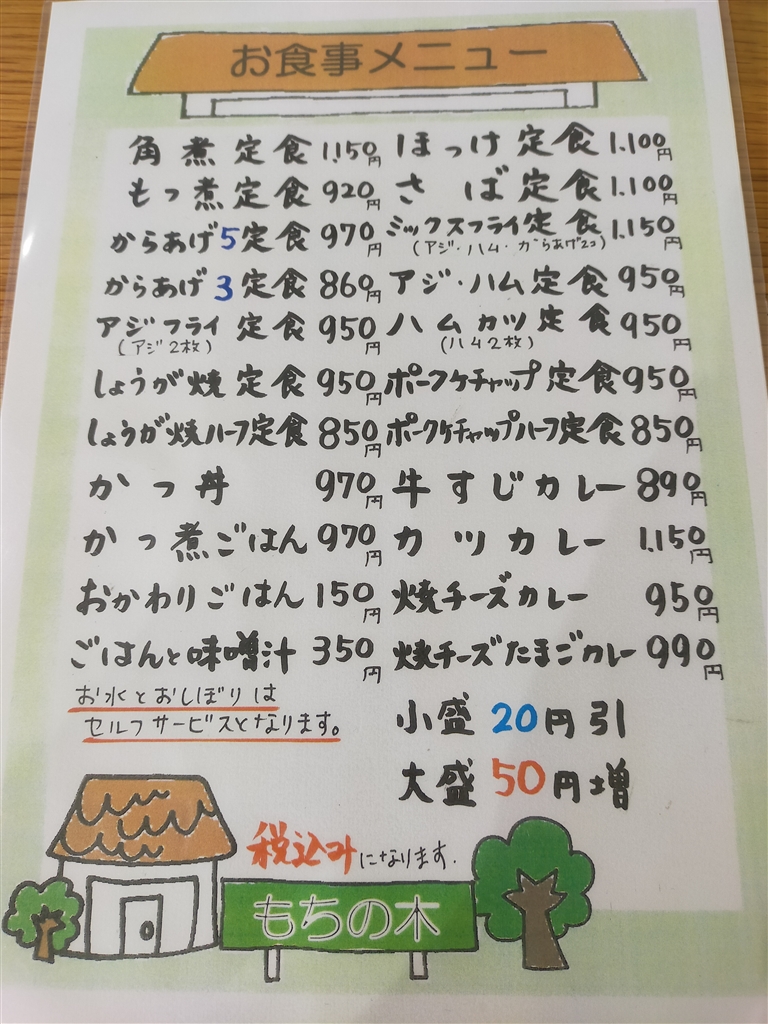 お食事メニュー
角煮定食 1,150円
もつ煮定食 920円
からあげ5定食 970円
からあげ3定食 860円
アジフライ定食 950円
(アジ2枚)
しょうが焼定食 950円
しょうが焼ハーフ定食 850円
かつ丼 970円
かつ煮ごはん 970円
おかわりごはん 150円
ごはんと味噌汁 350円
お水とおしぼりは
セルフサービスとなります。
ほっけ定食 1,100円
さば定食 1,100円
ミックスフライ定食 1,150円
(アジ・ハム・からあげ2コ)
アジ・ハム定食 950円
ハムカツ定食 950円
(ハム2枚)
ポークケチャップ定食 950円
ポークケチャップハーフ定食 850円
牛すじカレー 890円
カツカレー 1,150円
焼チーズカレー 950円
焼チーズたまごカレー 990円
小盛 20円引
大盛 50円増
税込みになります.
もちの木